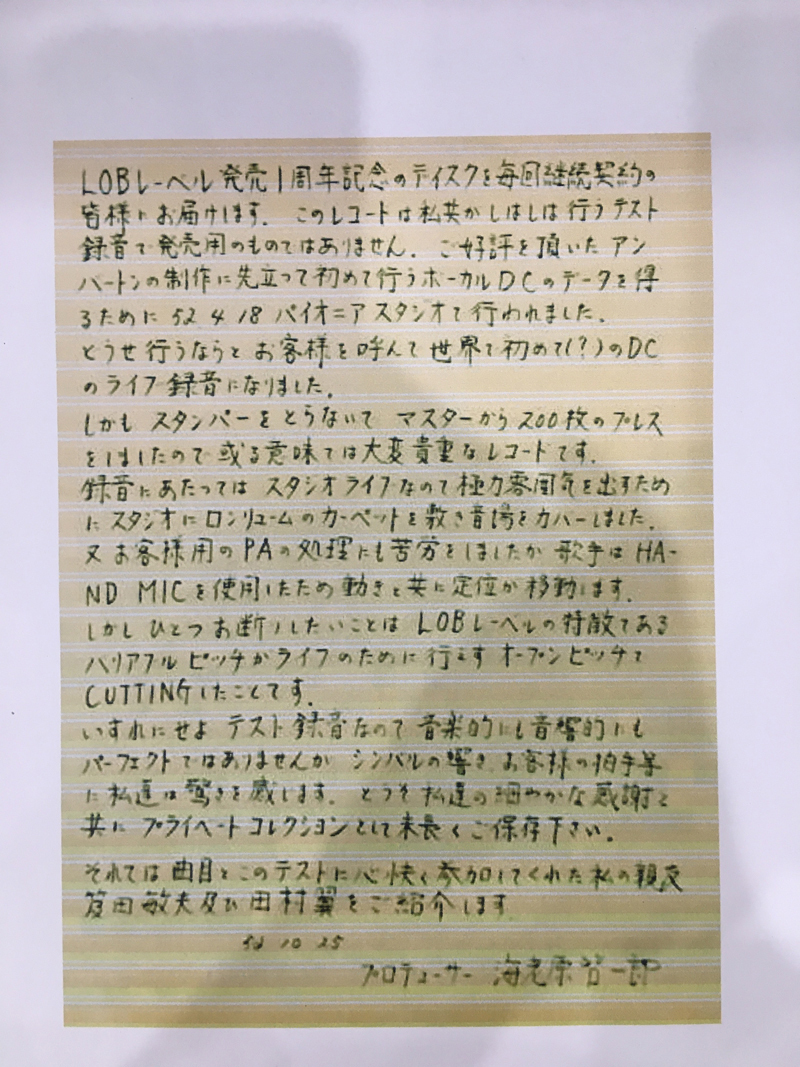 LOBレーベル発売1周年記念のディスクを毎回継続契約の
皆様にお届けします. このレコードは私共がしばしば行うテスト
録音で発売用のものではありません. ご好評を頂いた アン
バートンの制作に先立って初めて行うボーカルDCのデータを得
るために 52 4 18 パイオニアスタジオで行われました.
どうせ行うならと お客様を呼んで 世界で初めて(?)のDC
のライブ録音になりました.
しかも スタンパーをとらないで マスターから200枚のプレス
をしましたので 或る意味では大変貴重なレコードです.
録音にあたっては スタジオライブなので極力雰囲気を出すため
に スタジオにロンリュームのカーペットを敷き音場をカバーしました.
又お客様用のPAの処理にも苦労をしましたが 歌手は HA-
ND MICを使用したため動きと共に定位が移動します.
しかし ひとつ お断りしたいことは LOBレーベルの特徴である
バリアブルピッチがライブのために行えず オープンピッチで
CUTTINGしたことです.
いずれにせよ テスト録音なので 音楽的にも音響的にも
パーフェクトではありませんが シンバルの響き お客様の拍手等
に私達は驚きを感じます. どうぞ私達の細やかな感謝と
共に プライベートコレクションとして末長くご保存下さい.
それでは曲目とこのテストに心快く参加してくれた私の親友
笈田敏夫及び田村翼をご紹介します
52 10 25
プロデューサー 海老原谷一郎